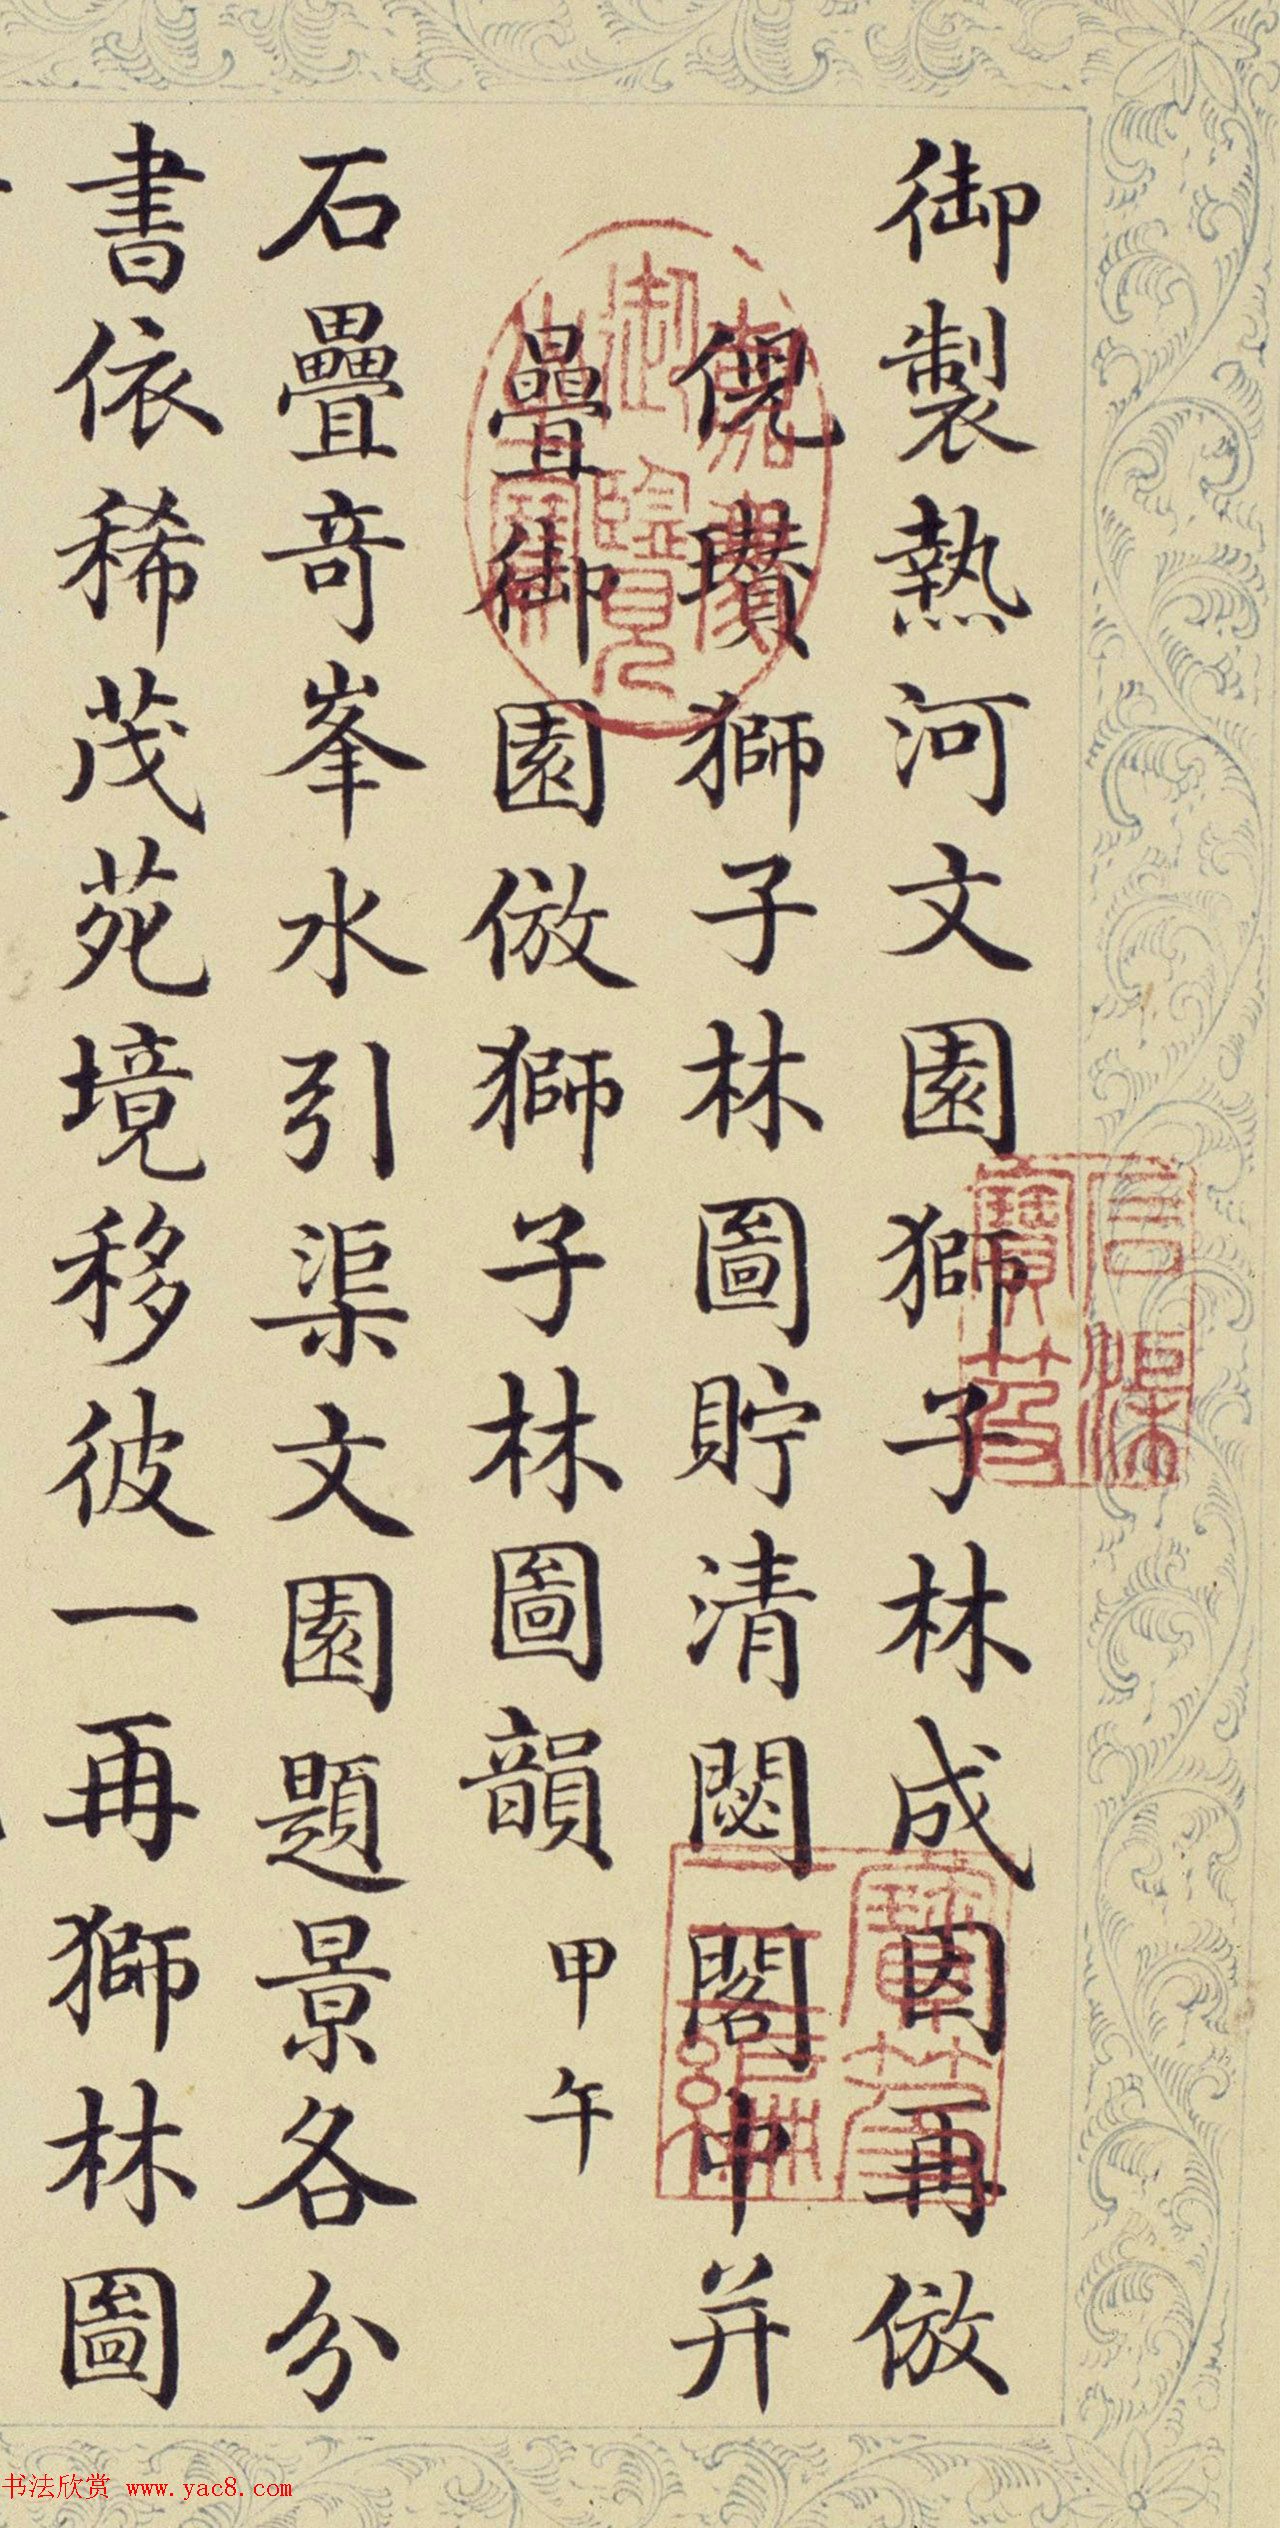 御製熱河文園獅子林成因再倣
倪瓚獅子林圖貯清閟閣中并
疊御園倣獅子林圖韻 甲午
石疊奇峯水引渠文園題景各分
書依稀茂苑境移彼一再獅林圖
嘉慶御覽之寶
書法欣赏 www.yac8.com